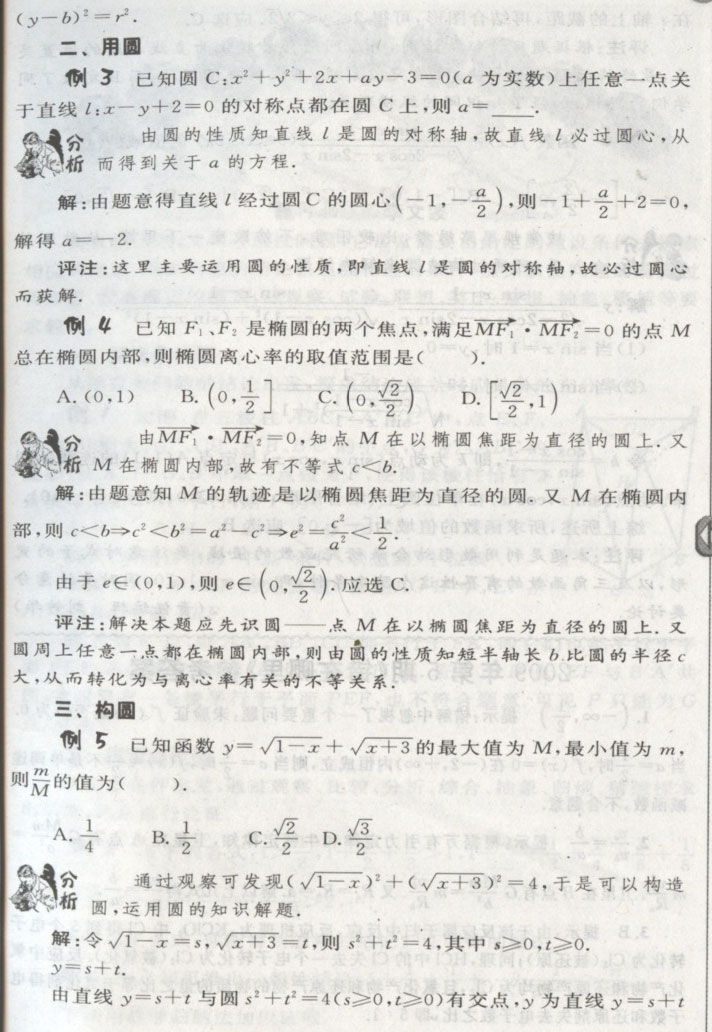 (y－b)²＝r².
二、用圆
例 3 已知圆 C:x²＋y²＋2x＋ay－3＝0(a 为实数)上任意一点关
于直线 l:x－y＋2＝0 的对称点都在圆 C 上,则 a＝____.
分析 由圆的性质知直线 l 是圆的对称轴,故直线 l 必过圆心,从
而得到关于 a 的方程.
解:由题意得直线 l 经过圆 C 的圆心(－1,－a/2),则－1＋a/2＋2＝0,
解得 a＝－2.
评注:这里主要运用圆的性质,即直线 l 是圆的对称轴,故必过圆心
而获解.
例 4 已知 F₁、F₂ 是椭圆的两个焦点,满足MF₁→·MF₂→＝0 的点 M
总在椭圆内部,则椭圆离心率的取值范围是( ).
A. (0,1) B. (0,1/2] C. (0,√2/2) D. [√2/2,1)
分析 由MF₁→·MF₂→＝0,知点 M 在以椭圆焦距为直径的圆上. 又
M 在椭圆内部,故有不等式 c<b.
解:由题意知 M 的轨迹是以椭圆焦距为直径的圆. 又 M 在椭圆内
部,则 c<b⇒c²<b²＝a²－c²⇒e²＝c²/a²<1/2.
由于 e∈(0,1),则 e∈(0,√2/2).应选 C.
评注:解决本题应先识圆——点 M 在以椭圆焦距为直径的圆上. 又
圆周上任意一点都在椭圆内部,则由圆的性质知短半轴长 b 比圆的半径 c
大,从而转化为与离心率有关的不等关系.
三、构圆
例 5 已知函数 y＝√(1－x)＋√(x＋3)的最大值为 M,最小值为 m,
则m/M的值为( ).
A. 1/4 B. 1/2 C. √2/2 D. √3/2
分析 通过观察可发现(√(1－x))²＋(√(x＋3))²＝4,于是可以构造
圆,运用圆的知识解题.
解:令√(1－x)＝s,√(x＋3)＝t,则 s²＋t²＝4,其中 s≥0,t≥0.
y＝s＋t.
由直线 y＝s＋t 与圆 s²＋t²＝4(s≥0,t≥0)有交点,y 为直线 y＝s＋t